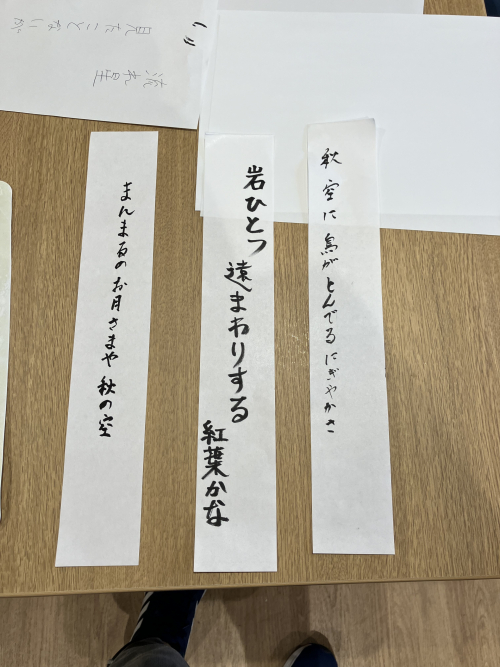 秋空に鳥がとんでるにぎやかさ
岩ひとつ
遠まわりする
紅葉かな
まんまるのお月さまや秋の空
流れ星
見たことないか